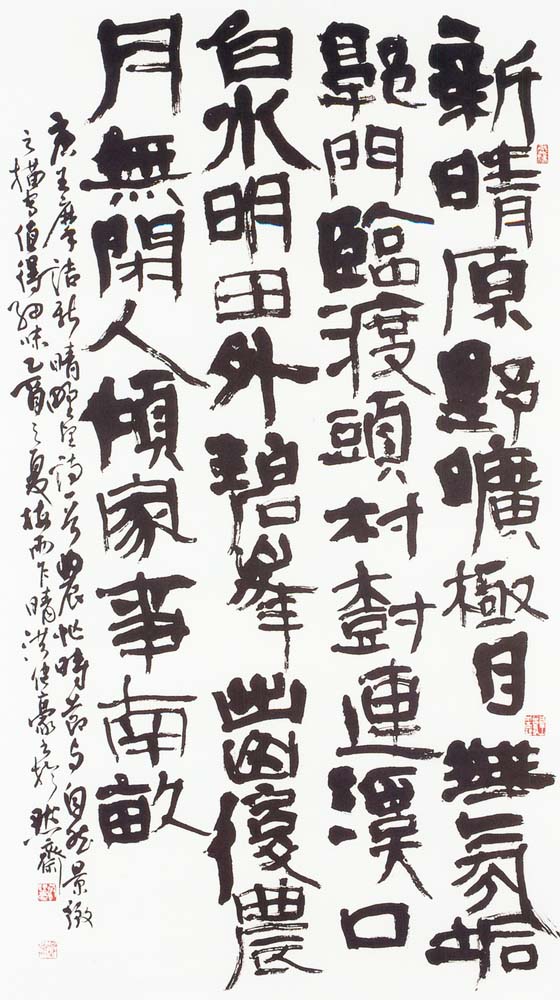 新晴原野曠極目無氛垢
郭門臨渡頭村樹連溪口
白水明田外碧峯出山後農
月無閑人傾家事南畝
唐王摩詰新晴野望詩一首農忙時節与自然景緻
之描寫值得細味乙酉之夏梅雨乍晴洪豪於默齋